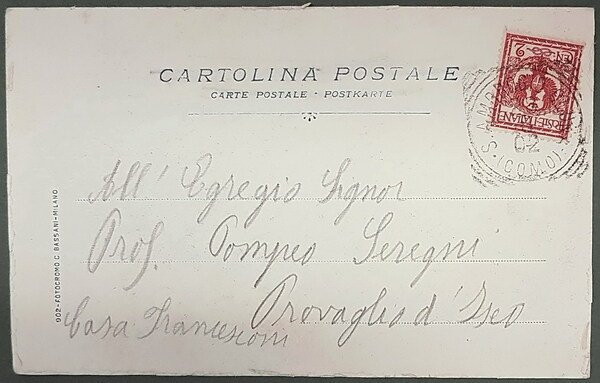 CARTOLINA POSTALE
CARTE POSTALE - POSTKARTE
POSTE ITALIANE
2
(COMO)
02
All' Egregio Signor
Prof. Pompeo Seregni
Provaglio d'Iseo
Casa Francesconi
902-FOTOCROMO C. BASSANI-MILANO